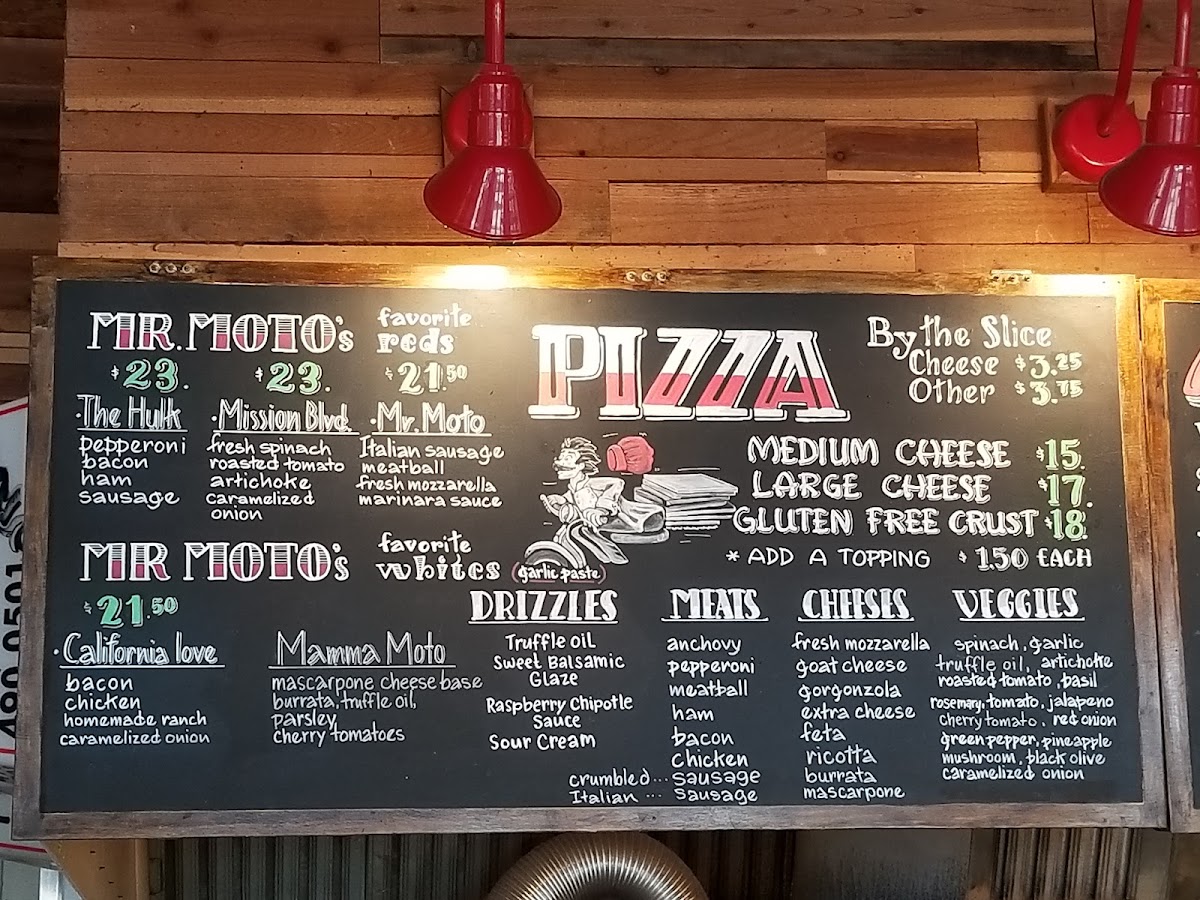 MR. MOTO's favorite reds
$23. $23. $21.50
·The Hulk
pepperoni
bacon
ham
sausage
·Mission Blvd.
fresh spinach
roasted tomato
artichoke
caramelized
onion
·Mr. Moto
Italian sausage
meatball
fresh mozzarella
marinara sauce
MR MOTO's favorite whites
$21.50
·California love
bacon
chicken
homemade ranch
caramelized onion
Mamma Moto
mascarpone cheese base
burrata, truffle oil,
parsley,
cherry tomatoes
PIZZA
By the Slice
Cheese $3.25
Other $3.75
MEDIUM CHEESE $15.
LARGE CHEESE $17.
GLUTEN FREE CRUST $18.
* ADD A TOPPING $1.50 EACH
(garlic paste)
DRIZZLES
Truffle OIL
Sweet Balsamic
Glaze
Raspberry Chipotle
Sauce
Sour Cream
MEATS
anchovy
pepperoni
meatball
ham
bacon
Chicken
crumbled... sausage
Italian ... Sausage
CHEESES
fresh mozzarella
goat cheese
gorgonzola
extra cheese
feta
ricotta
burrata
mascarpone
VEGGIES
spinach, garlic
truffle oil, artichoke
roasted tomato, basil
rosemary, tomato, jalapeno
cherry tomato, red onion
green pepper, pineapple
mushroom, black olive
caramelized onion
490.0501